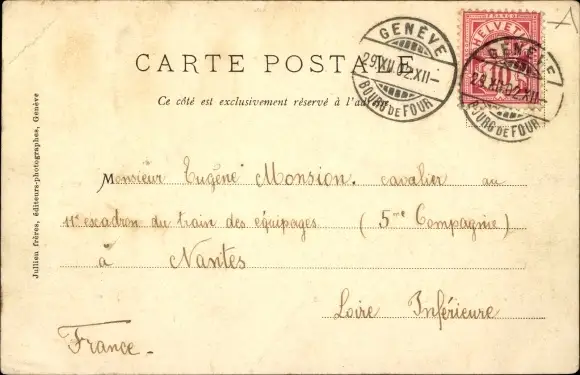 HELVETIA
10
GENÈVE
29.XII.02.XII-
BOURG DE FOUR
GENÈVE
29.XII.02.XII
BOURG DE FOUR
CARTE POSTALE
Ce côté est exclusivement réservé à l'adresse
Monsieur Eugène Monsion. cavalier au
11e escadron du train des équipages (5me Compagnie)
à Nantes
Loire Inférieure
France-
Jullien frères, éditeurs-photographes, Genève